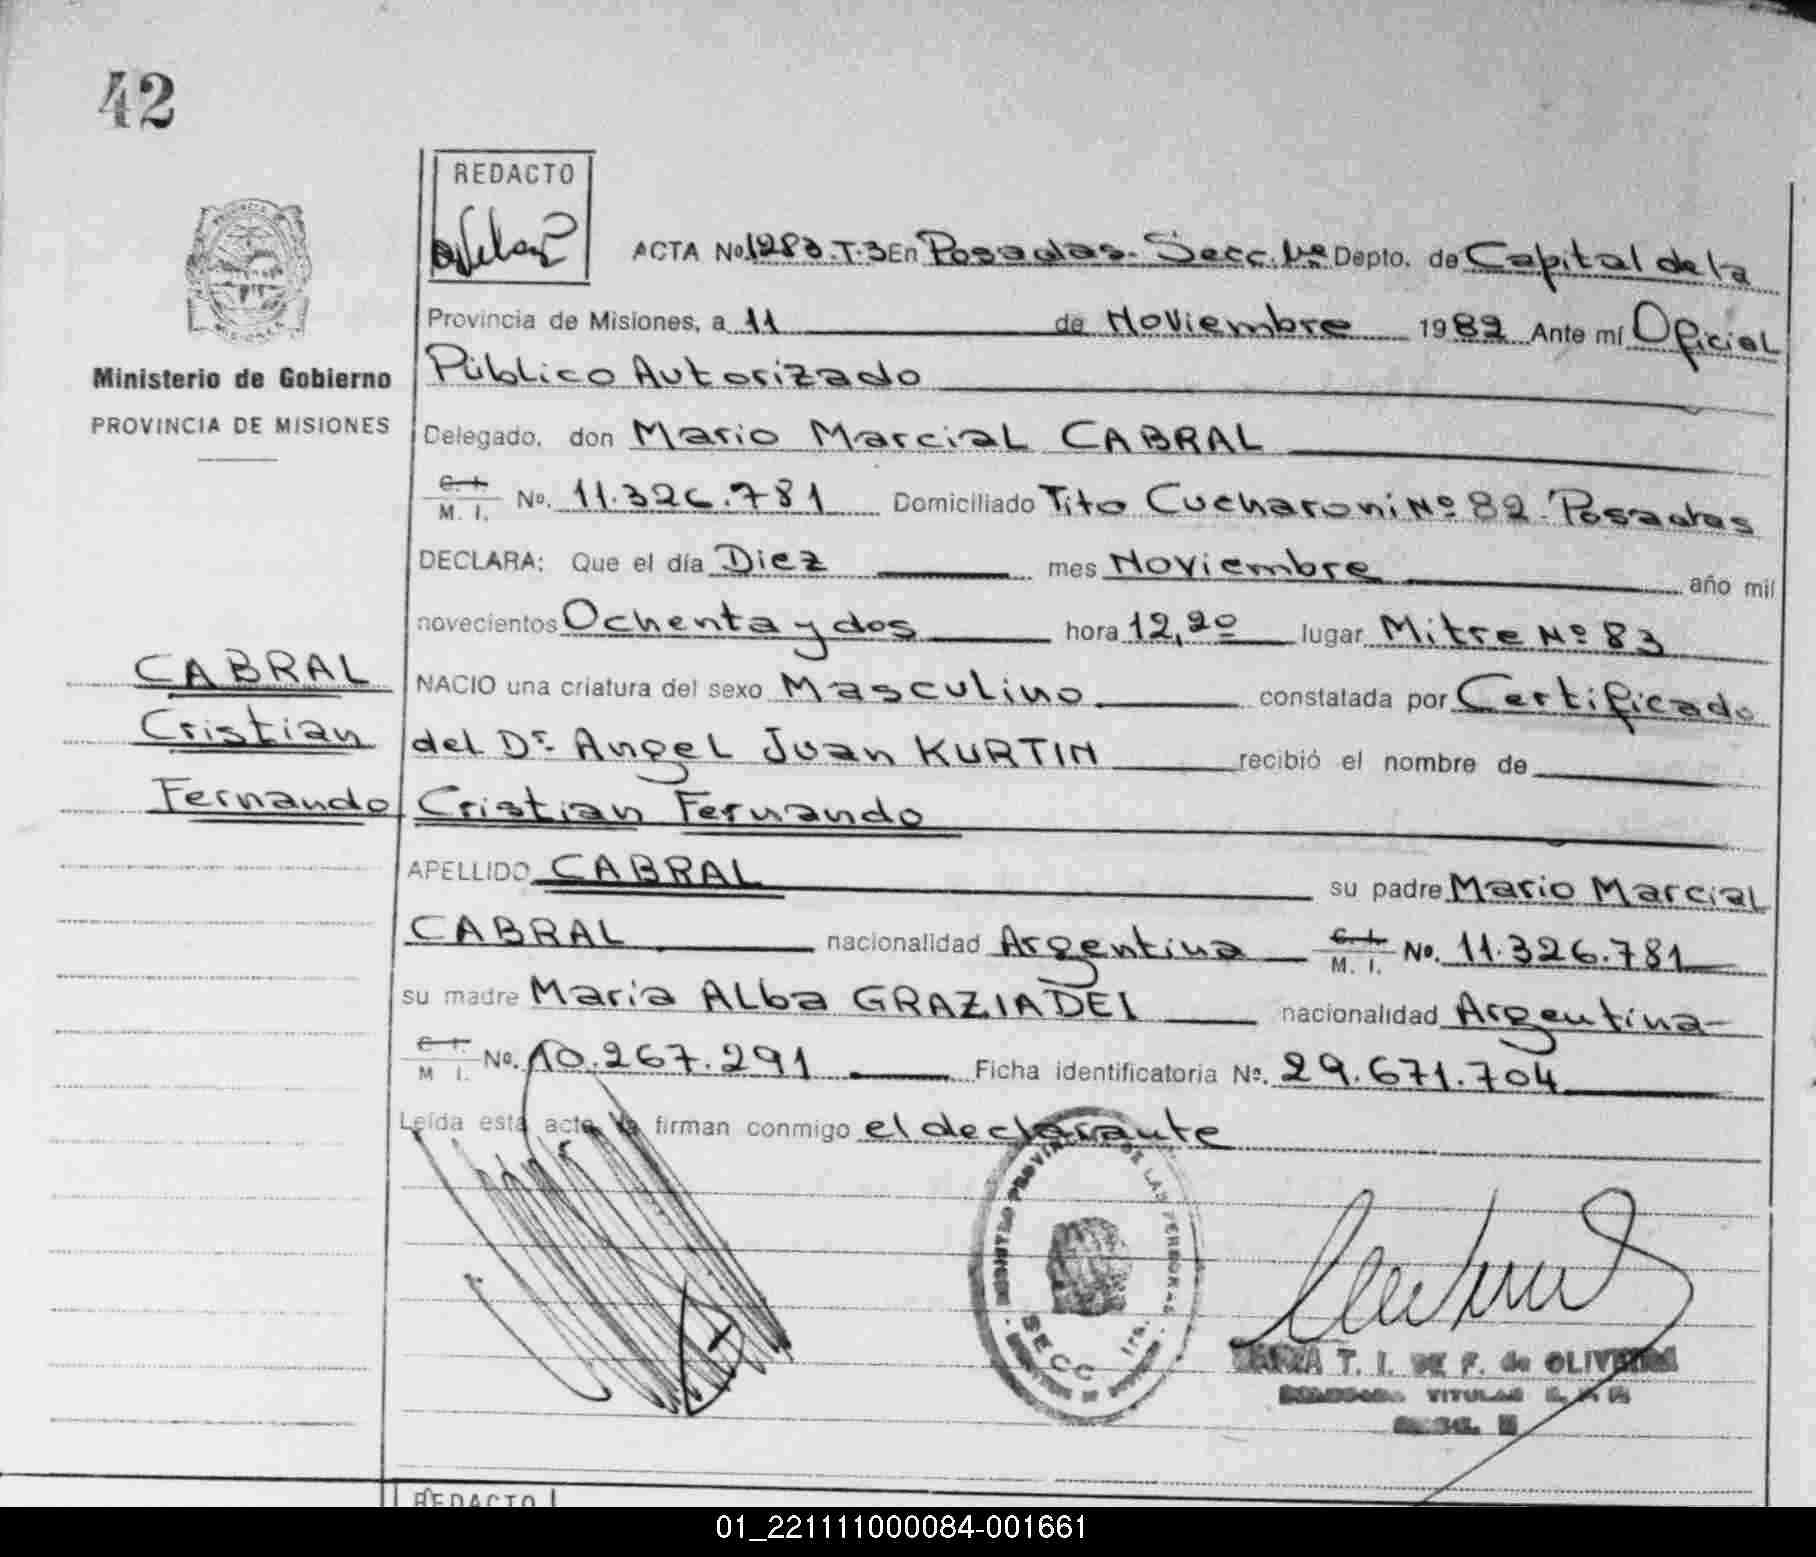 42
REDACTO
ACTA No. 1283.T.3 En Posadas. Secc. 1ra Depto. de Capital de la
Provincia de Misiones, a 11 de Noviembre 1982 Ante mí Oficial
Ministerio de Gobierno
Público Autorizado
PROVINCIA DE MISIONES
Delegado, don Mario Marcial CABRAL
C. I. M. I. No. 11.326.781 Domiciliado Tito Cucharoni Nº 82. Posadas
DECLARA: Que el día Diez mes Noviembre año mil
novecientos Ochenta y dos hora 12,20 lugar Mitre Nº 83
CABRAL
NACIO una criatura del sexo Masculino constatada por Certificado
Cristian
del Dr. Angel Juan KURTIN recibió el nombre de
Fernando
Cristian Fernando
APELLIDO CABRAL su padre Mario Marcial
CABRAL nacionalidad Argentina C. I. M. I. No. 11.326.781
su madre Maria Alba GRAZIADEI nacionalidad Argentina
C. I. M. I. No. 10.267.291 Ficha identificatoria No. 29.671.704
Leída esta acta la firman conmigo el declarante
REGISTRO PROVINCIAL DE LAS PERSONAS
SECC 1ra.
MARIA T. I. DE F. de OLIVEIRA
TITULAR
REDACTO
01_221111000084-001661